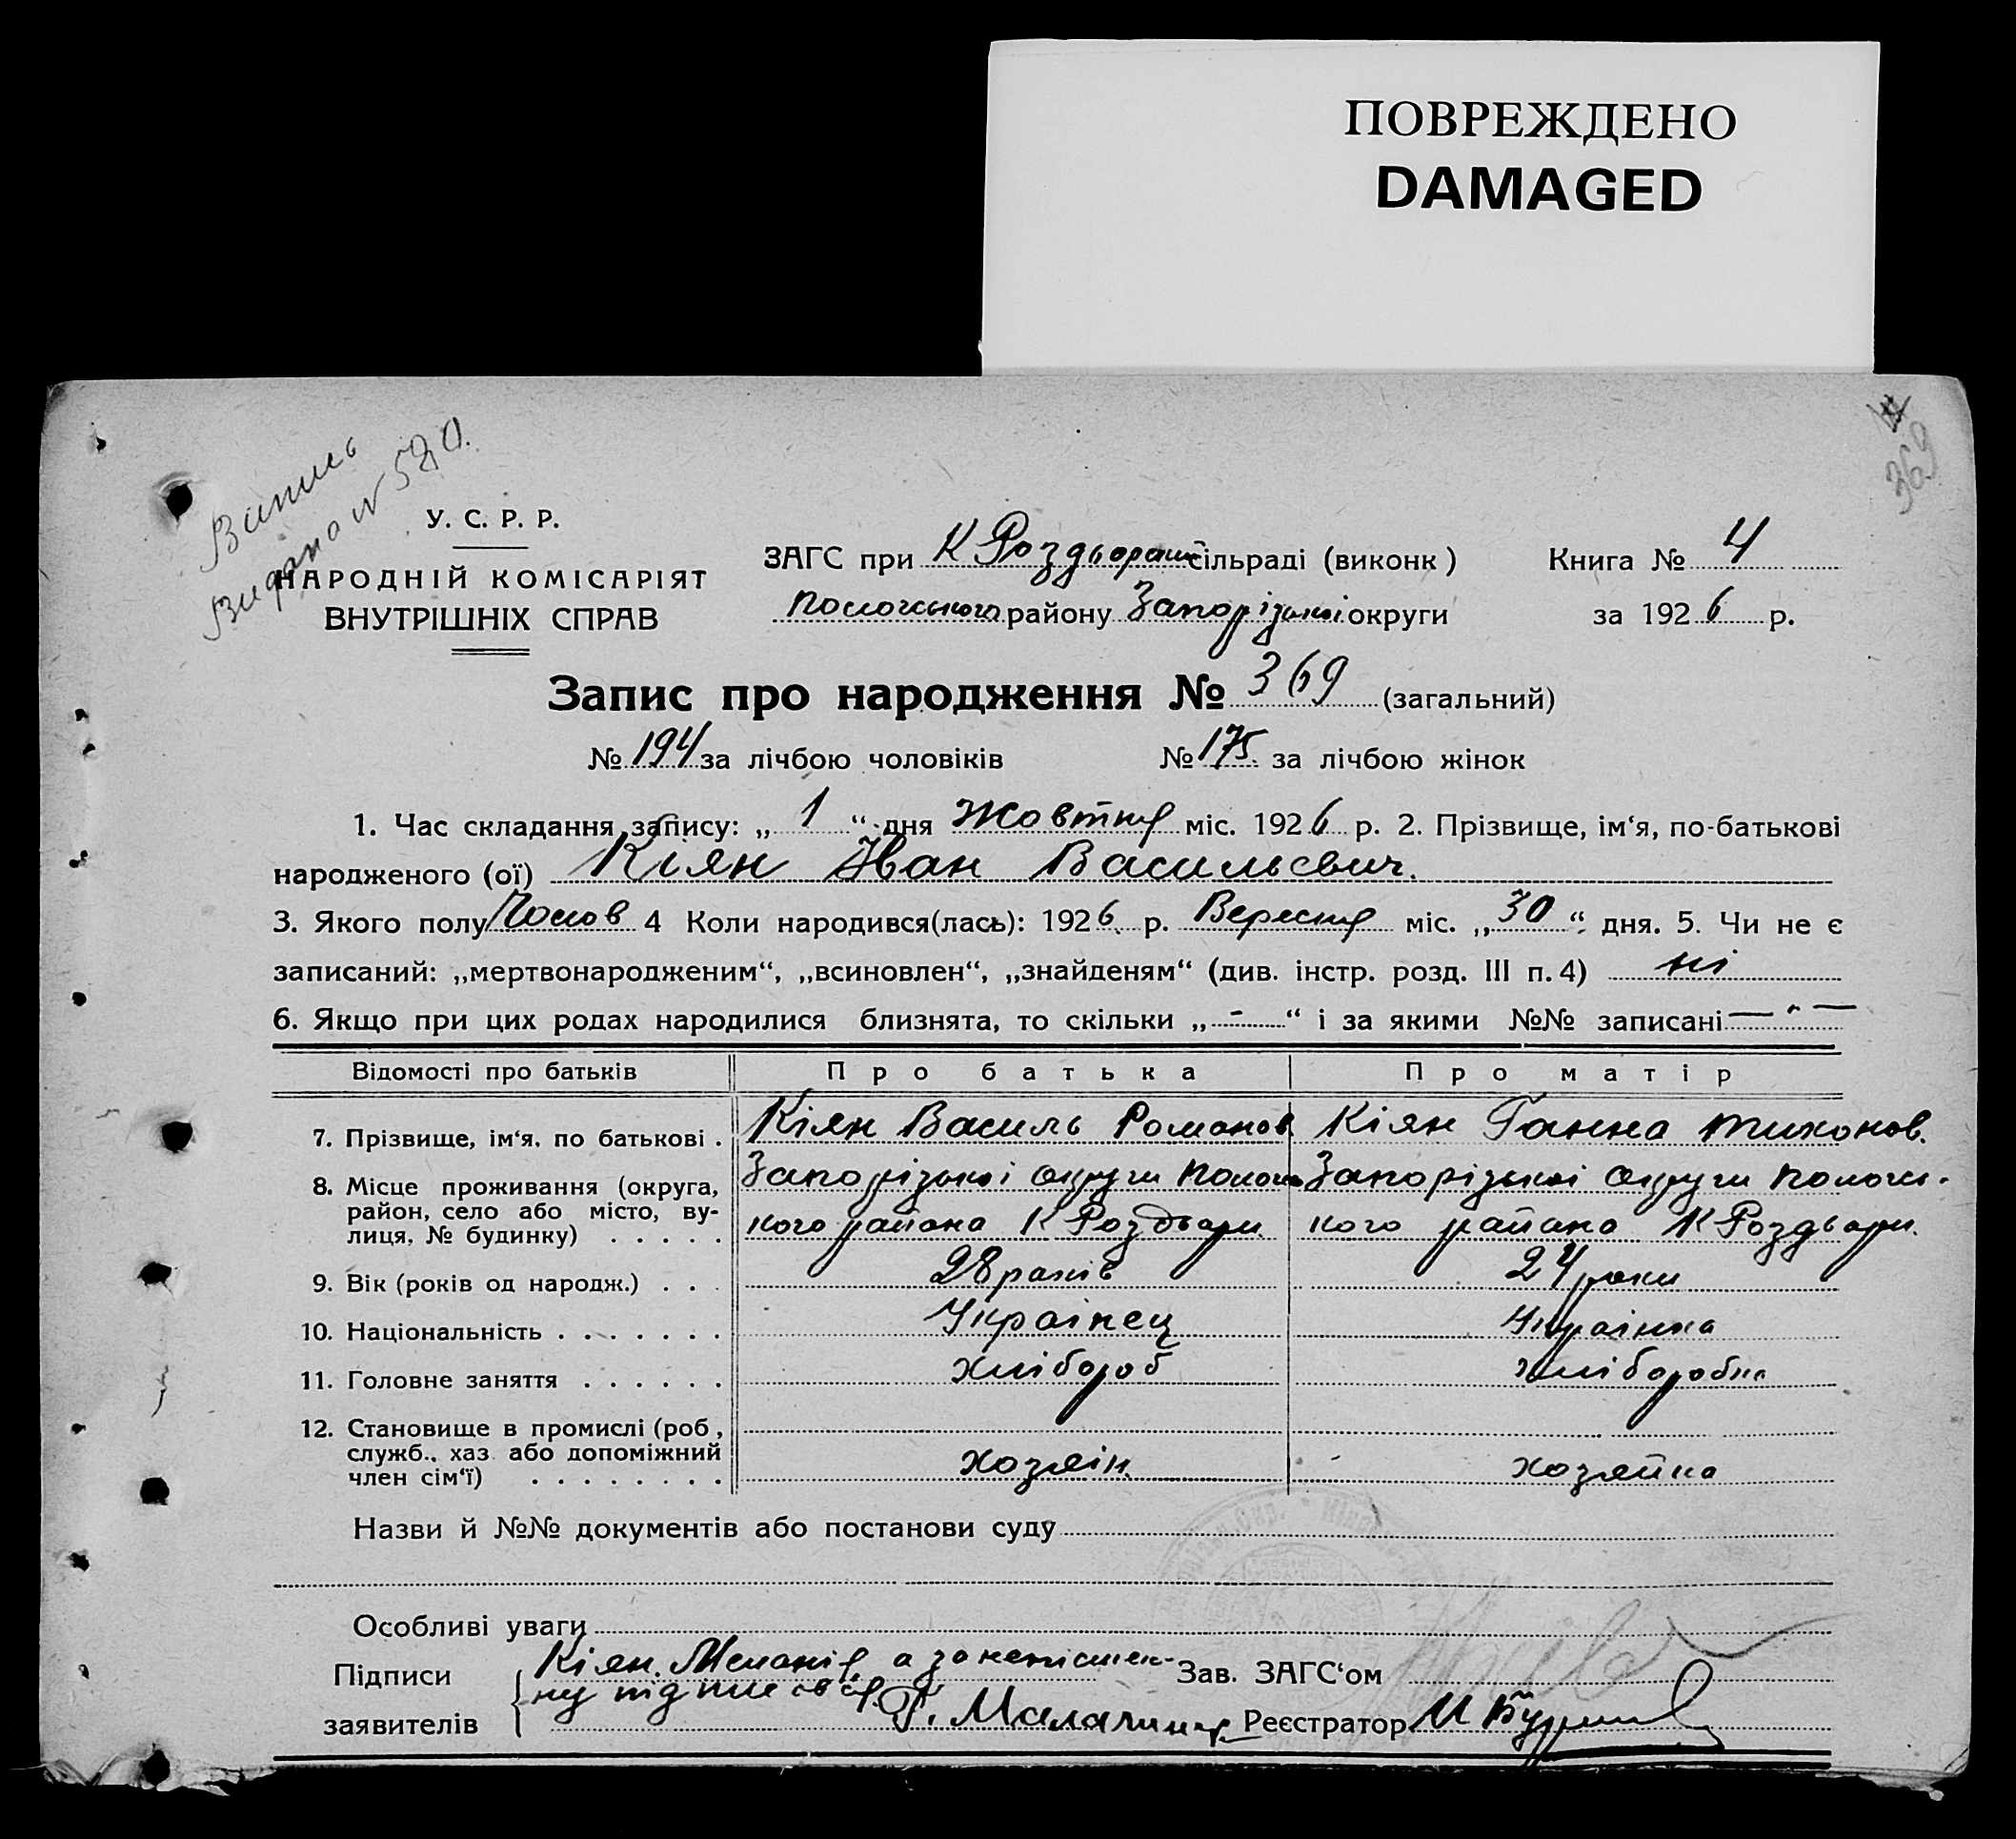 ПОВРЕЖДЕНО
DAMAGED
369
Випись
видано N 580.
У. С. Р. Р.
НАРОДНІЙ КОМІСАРІЯТ
ВНУТРІШНІХ СПРАВ
ЗАГС при К Роздорській сільраді (виконк) Книга № 4
Пологського району Запорізької округи за 1926 р.
Запис про народження № 369 (загальний)
№ 194 за лічбою чоловіків № 175 за лічбою жінок
1. Час складання запису: „ 1 “ дня Жовтня міс. 1926 р. 2. Прізвище, ім‘я, по-батькові
народженого (ої) Кіян Іван Васильевич.
3. Якого полу Чолов 4 Коли народився(лась): 1926 р. Вересня міс. „30“ дня. 5. Чи не є
записаний: „мертвонародженим“, „всиновлен“, „знайденям“ (див. інстр. розд. III п. 4) ні
6. Якщо при цих родах народилися близнята, то скільки „ - “ і за якими №№ записані — " —
Відомості про батьків Про батька Про матір
7. Прізвище, ім‘я, по батькові . Кіян Василь Романов Кіян Ганна Тихонов.
8. Місце проживання (округа, Запорізької Округи Пологс Запорізької Округи Пологсь-
район, село або місто, ву- кого района К Роздори. кого района К Роздори.
лиця, № будинку) . . . . .
9. Вік (років од народж.) . . . 28 років 24 роки
10. Національність . . . . . . . Українец Українка
11. Головне заняття . . . . . . хлібороб хліборобка
12. Становище в промислі (роб,
служб., хаз. або допоміжний хозяін. хозяйка
член сім‘ї) . . . . . . . .
Назви й №№ документів або постанови суду
Особливі уваги
Підписи Кіян. Меланія, а за неписьмен- Зав. ЗАГС‘ом
заявителів ну підписався Реєстратор